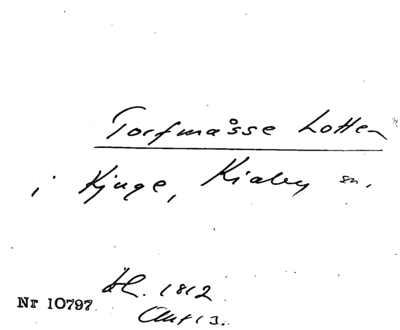 Torfmåsse Lotten
i Kjuge, Kiaby sn.
Nr 10797
1812